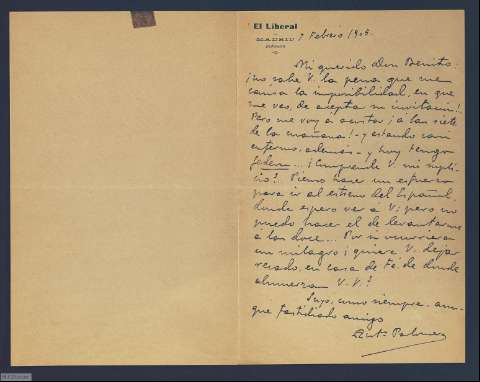 El Liberal
MADRID
7 Febrero 1905.
Mi querido Don Benito:
¡no sabe V. la pena que me
causa la imposibilidad, en que
me veo, de aceptar su invitación!
Pero me voy a acostar ¡a las siete
de la mañana! - y estando casi
enfermo, además - y hoy tengo
... ¡Comprende V. mi supli-
cio? Pienso hacer un esfuerzo
para ir al estreno del Español,
donde espero ver á V; pero no
puedo hacer el de levantarme
á las doce... Por si ocurriera
un milagro ¿quiere V. dejar
recado, en casa de Fé, de donde
almuerzan V.V.?
Suyo, como siempre, aun-
que fastidiado amigo
Antº Palomero